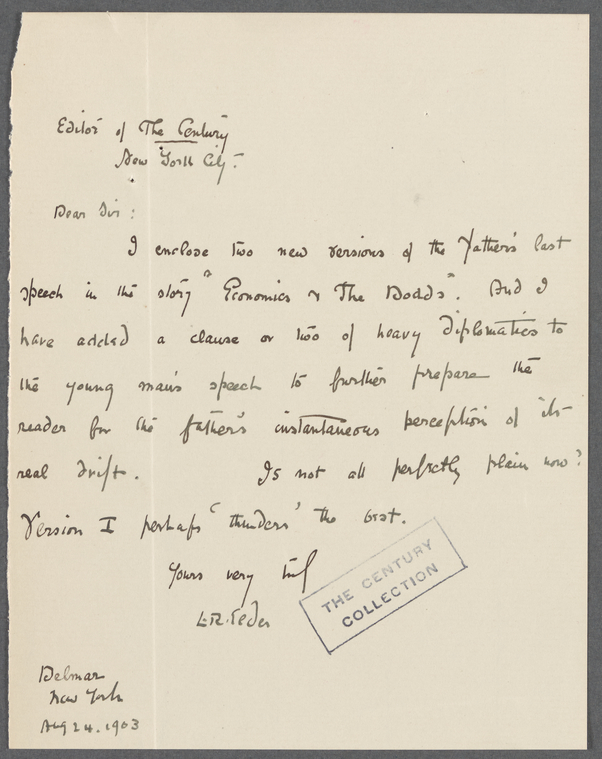 Editor of The Century
New York City.
Dear Sir:
I enclose two new versions of the Father's last
speech in the story "Economics & The Dodds". And I
have added a clause or two of heavy diplomatics to
the young man's speech to further prepare the
reader for the father's instantaneous perception of its
real drift. Is not all perfectly plain now?
Version I perhaps 'thunders' the best.
Yours very
L.R. Elder
THE CENTURY
COLLECTION
Delmar
New York
Aug 24. 1903